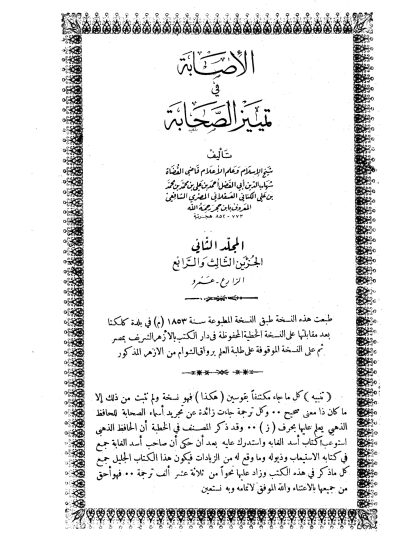 الإصابة
في
تمييز الصحابة
تأليف
شيخ الإسلام وعلم الأعلام قاضي القضاة
شهاب الدين أبي الفضل أحمد بن علي بن محمد بن محمد
بن علي الكناني العسقلاني المصري الشافعي
المعروف بابن حجر رحمه الله
٧٧٣ - ٨٥٢ هجرية
المجلد الثاني
الجزءين الثالث والرابع
الزارع - عمرو
طبعت هذه النسخة طبق النسخة المطبوعة سنة ١٨٥٣ (م) في بلدة كلكتا
بعد مقابلتها على النسخة الخطية المحفوظة في دار الكتب بالأزهر الشريف بمصر
ثم على النسخة الموقوفة على طلبة العلم برواق الشوام من الأزهر المذكور
( تنبيه ) كل ما جاء مكتنفاً بقوسين ( هكذا ) فهو نسخة ولم تثبت من ذلك إلا
ما كان ذا معنى صحيح ٠٠ وكل ترجمة جاءت زائدة عن تجريد أسماء الصحابة للحافظ
الذهبي يعلم عليها بحرف ( ز ) ٠٠ وقد ذكر المصنف في الخطبة أن الحافظ الذهبي
استوعب كتاب أسد الغابة واستدرك عليه بعد أن حكى أن صاحب أسد الغابة جمع
في كتابه الاستيعاب وذيوله وما وقع له من الزيادات فيكون هذا الكتاب الجليل جميع
كل ماذكر في هذه الكتب وزاد عليها نحواً من ثلاثة عشر ألف ترجمة ٠٠ فهو أحق
من جميعها بالاعتناء والله الموفق لاتمامه وبه نستعين